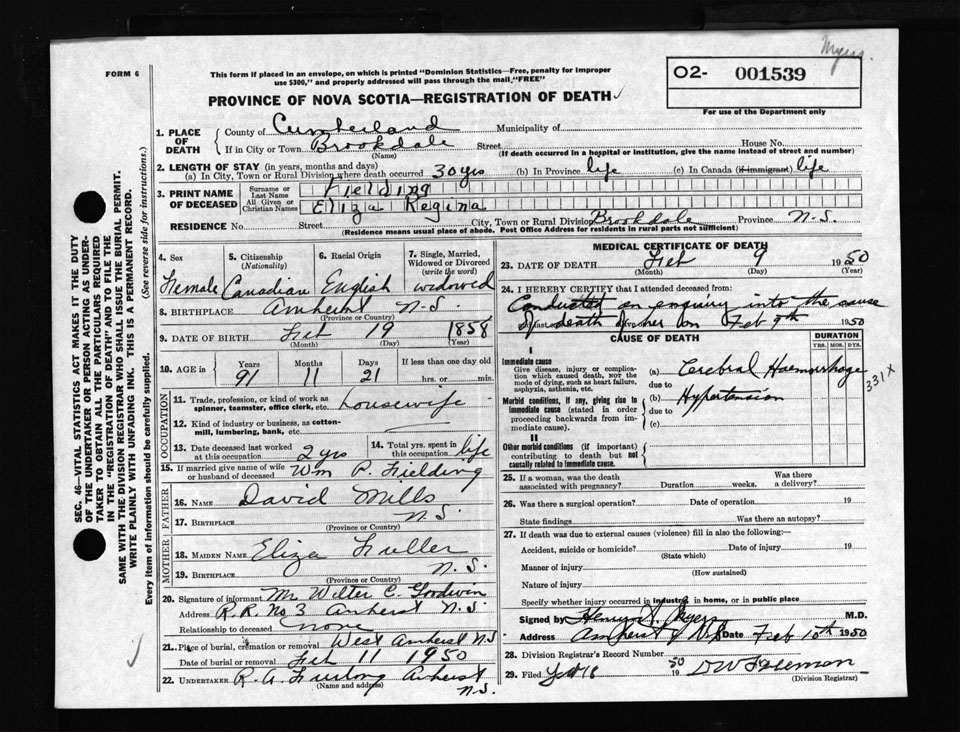 Myers
FORM 6
This form if placed in an envelope, on which is printed "Dominion Statistics—Free, penalty for improper
use $300," and properly addressed will pass through the mail "FREE"
O2- 001539
For use of the Department only
PROVINCE OF NOVA SCOTIA—REGISTRATION OF DEATH
1. PLACE OF DEATH
County of Cumberland Municipality of
If in City or Town Brookdale Street House No.
(Name) (If death occurred in a hospital or institution, give the name instead of street and number)
2. LENGTH OF STAY (in years, months and days)
(a) In City, Town or Rural Division where death occurred 30 yrs (b) In Province life (c) In Canada (if immigrant) life
3. PRINT NAME OF DECEASED
Surname or Last Name Fielding
All Given or Christian Names Eliza Regina
RESIDENCE No. Street City, Town or Rural Division Brookdale Province N.S.
(Residence means usual place of abode. Post Office Address for residents in rural parts not sufficient)
4. Sex 5. Citizenship (Nationality) 6. Racial Origin 7. Single, Married, Widowed or Divorced (write the word)
Female Canadian English widowed
8. BIRTHPLACE Amherst N.S.
(Province or Country)
9. DATE OF BIRTH Feb 19 1858
(Month) (Day) (Year)
10. AGE in Years Months Days If less than one day old
91 11 21 hrs. or min.
OCCUPATION
11. Trade, profession, or kind of work as
spinner, teamster, office clerk, etc. housewife
12. Kind of industry or business, as cotton-
mill, lumbering, bank, etc.
13. Date deceased last worked
at this occupation 2 yrs
14. Total yrs. spent in
this occupation life
15. If married give name of wife
or husband of deceased Wm P. Fielding
FATHER
16. NAME David Mills
17. BIRTHPLACE N.S.
(Province or Country)
MOTHER
18. MAIDEN NAME Eliza Fuller
19. BIRTHPLACE N.S.
(Province or Country)
20. Signature of informant Mr. Wilter C. Goodwin
Address R.R. No 3 Amherst N.S.
Relationship to deceased none
21. Place of burial, cremation or removal West Amherst N.S
Date of burial or removal Feb 11 1950
22. UNDERTAKER R. A. Furlong Amherst
(Name and address) N.S.
MEDICAL CERTIFICATE OF DEATH
23. DATE OF DEATH Feb 9 1950
(Month) (Day) (Year)
24. I HEREBY CERTIFY that I attended deceased from:
Conducted an enquiry into the cause
of death of her on Feb 9th 1950
CAUSE OF DEATH DURATION
YRS. MOS. DYS.
I
Immediate cause
Give disease, injury or complica-
tion which caused death, not the
mode of dying, such as heart failure,
asphyxia, asthenia, etc.
(a) Cerebral Haemorrhage
due to
331X
Morbid conditions, if any, giving rise to
immediate cause (stated in order
proceeding backwards from im-
mediate cause).
(b) Hypertension
due to
(c)
II
Other morbid conditions (if important)
contributing to death but not
causally related to immediate cause.
25. If a woman, was the death
associated with pregnancy? Duration weeks. Was there
a delivery?
26. Was there a surgical operation? Date of operation 19
State findings Was there an autopsy?
27. If death was due to external causes (violence) fill in also the following:
Accident, suicide or homicide? Date of injury 19
(State which)
Manner of injury
(How sustained)
Nature of injury
Specify whether injury occurred in industry, in home, or in public place
Signed by Myers M.D.
Address Amherst N.S Date Feb 10th 1950
28. Division Registrar's Record Number
29. Filed 1950
(Division Registrar)
SEC. 46—VITAL STATISTICS ACT MAKES IT THE DUTY
OF THE UNDERTAKER OR PERSON ACTING AS UNDER-
TAKER TO OBTAIN ALL THE PARTICULARS REQUIRED
IN THE "REGISTRATION OF DEATH" AND TO FILE THE
SAME WITH THE DIVISION REGISTRAR WHO SHALL ISSUE THE BURIAL PERMIT.
WRITE PLAINLY WITH UNFADING INK. THIS IS A PERMANENT RECORD.
Every item of information should be carefully supplied. (See reverse side for instructions.)